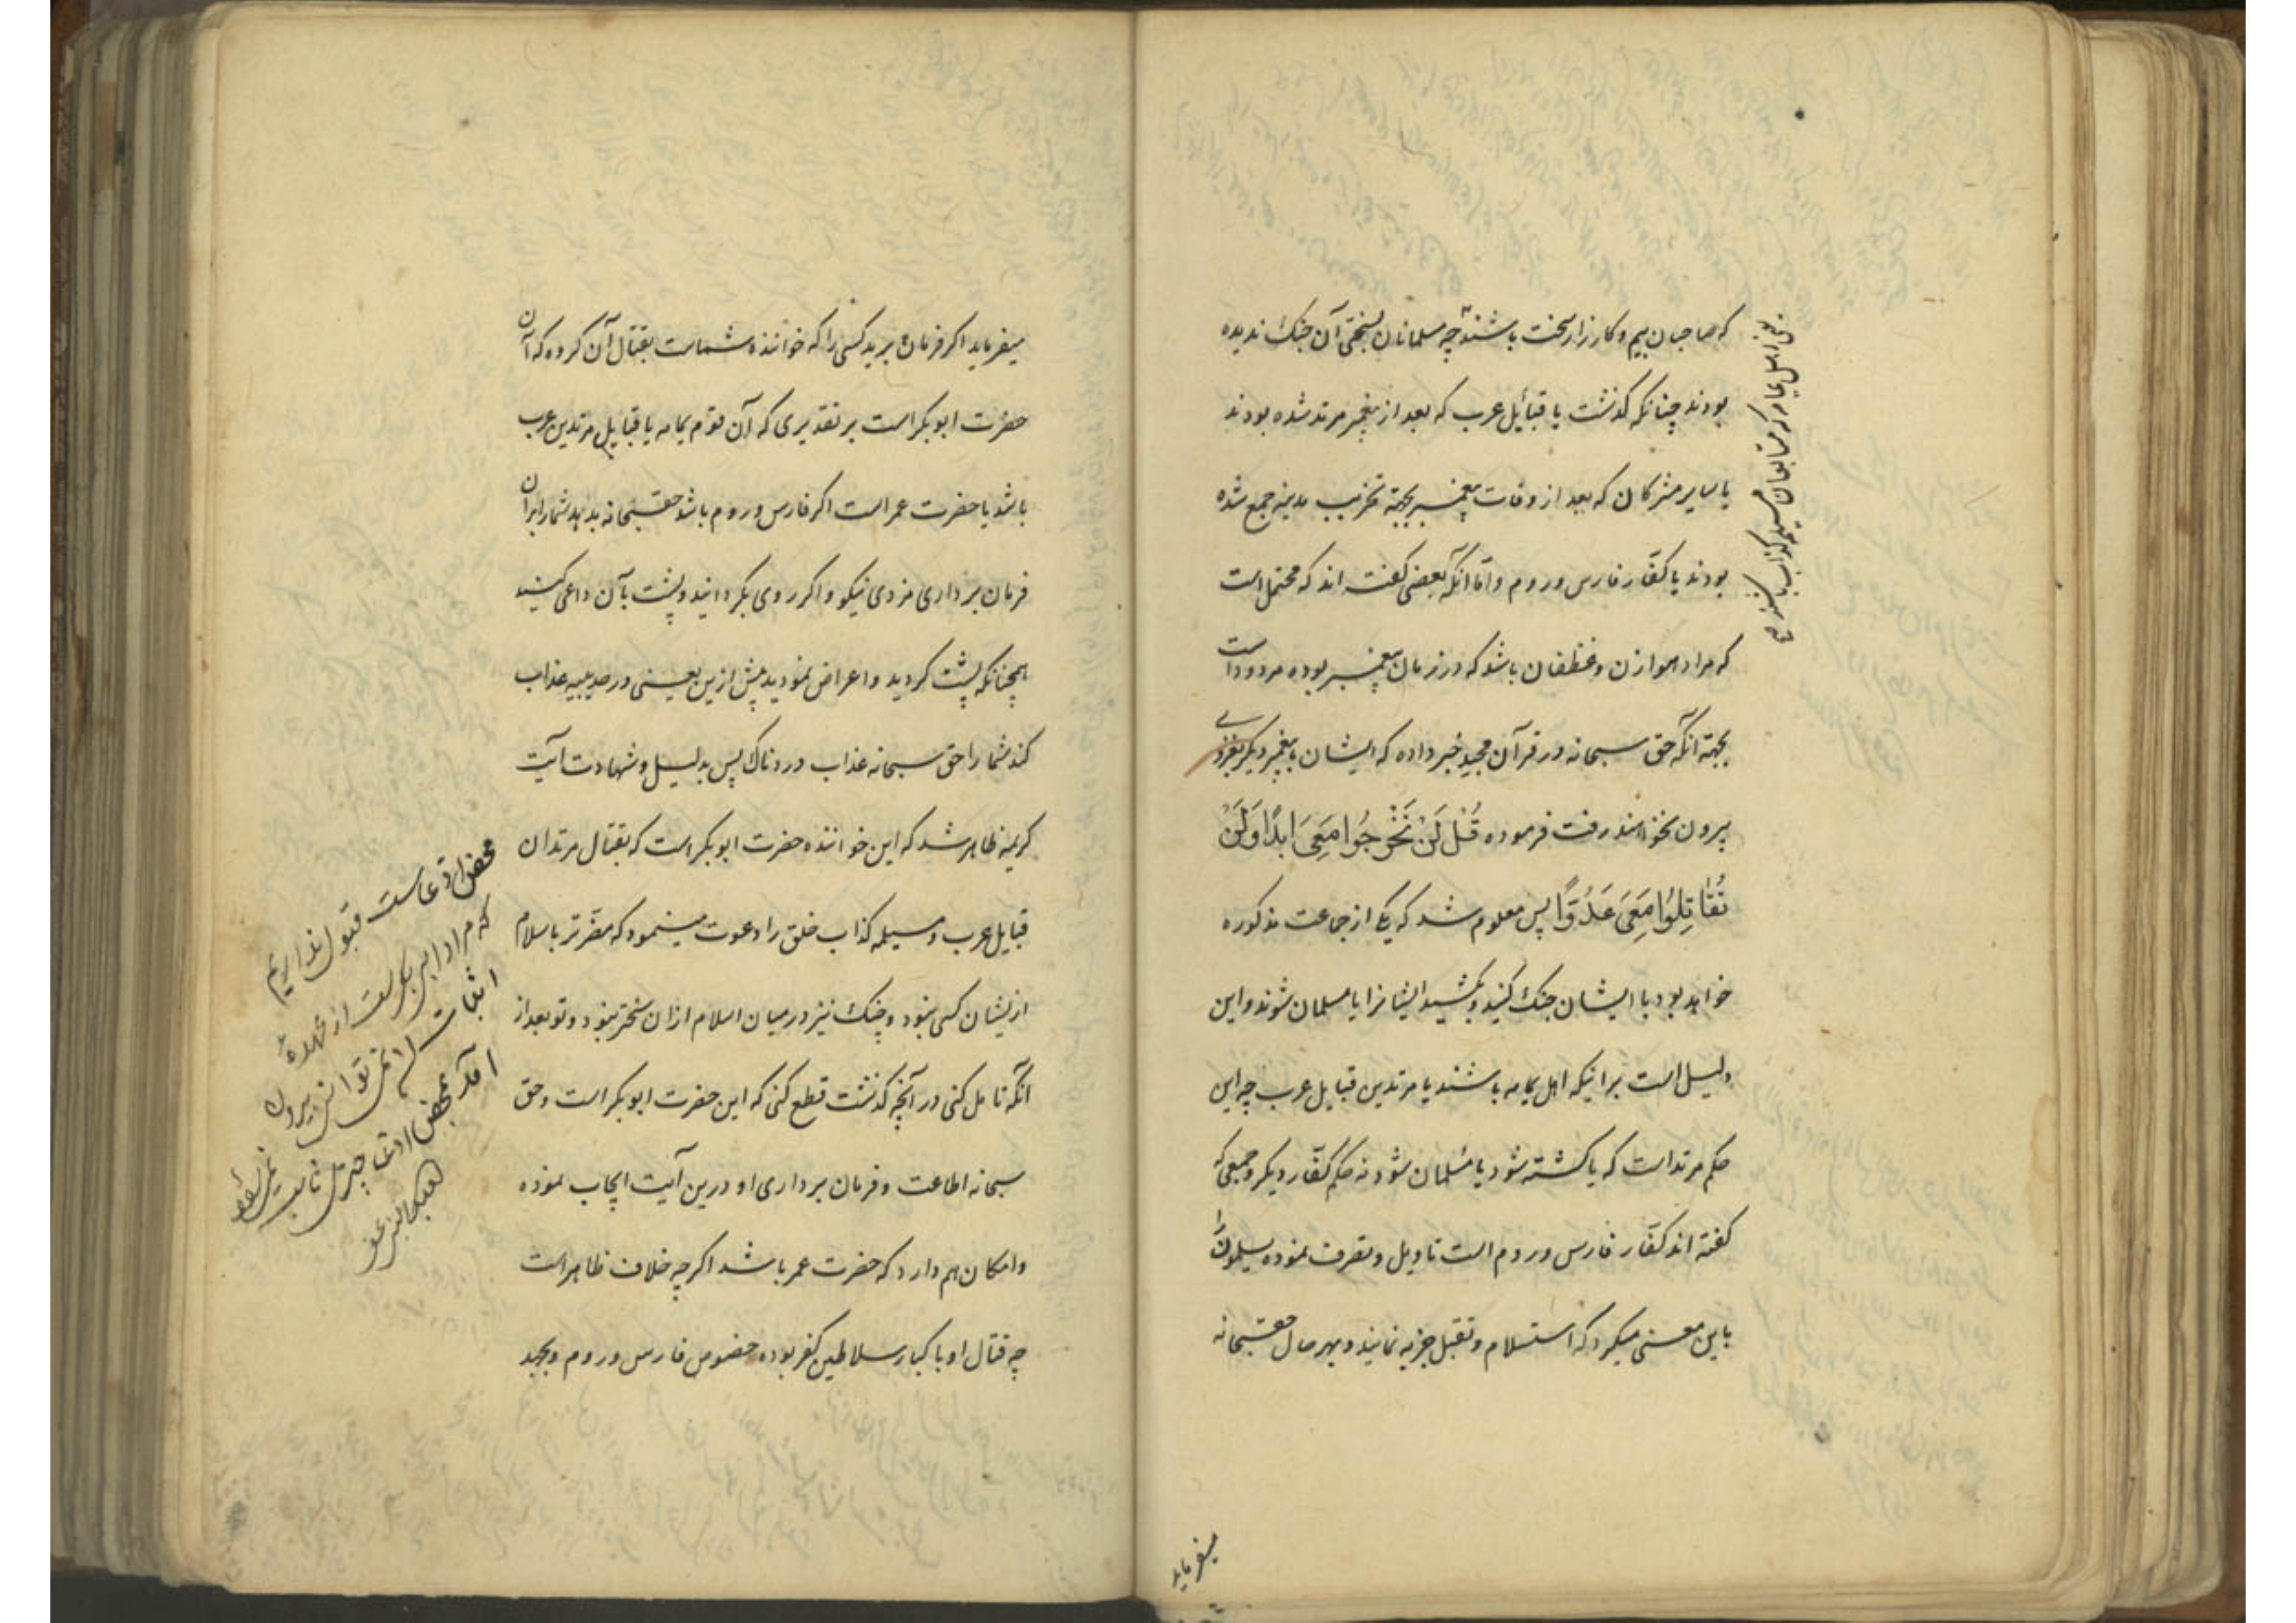 که صاحبان بیم و کارزار سخت باشند چه مسلمانان بسختی آن جنک ندیده
بودند چنانکه کذشت یا قبائل عرب که بعد از پیغمبر مرتد شده بودند
یا سایر مشرکان که بعد از وفات پیغمبر بجهة تخریب مدینه جمع شده
بودند یا کفّار فارس و روم و امّا آنکه بعضی کفته اند که محتمل است
که مراد هوازن و غطفان باشد که در زمان پیغمبر بوده مردود است
بجهة آنکه حق سبحانه در قرآن مجید خبر داده که ایشان با پیغمبر دیکر بغزوی
بیرون نخواهند رفت فرموده قُل لَنْ تَخْرُجُوا مَعِیَ اَبَدًا وَ لَنْ
تُقَاتِلُوا مَعِیَ عَدُوًّا پس معلوم شد که یکی از جماعت مذکوره
خواهد بود با ایشان جنک کنید و بکشید ایشانرا یا مسلمان شوند و این
دلیل است برانیکه اهل یمامه باشند یا مرتدین قبایل عرب چه این
حکم مرتد است که یا کشته شود یا مسلمان شود نه حکم کفّار دیکر و جمعی که
کفته اند کفّار فارس و روم است تاویل و تصرف نموده یسلمون را
باین معنی میکیرد که استسلام و تقبل جزیه نمایند و بهر حال حقسبحانه
یعنی اهل یمامه که متابعان مسیلمه کذاب باشند
میفرماید
میفرماید اکر فرمان برید کسی را که خواننده شماست بقتال آن کروه که آن
حضرت ابوبکر است بر تقدیری که آن قوم یمامه یا قبایل مرتدین عرب
باشد یا حضرت عمر است اکر فارس و روم باشد حقسبحانه بدهد شمارا بران
فرمان برداری مزدی نیکو و اکر روی بکردانید و پشت بآن داعی کنید
همچنانکه پشت کردید و اعراض نمودید پیش ازین یعنی در حدیبیه عذاب
کند شما را حق سبحانه عذاب دردناک پس بدلیل و شهادت آیت
کریمه ظاهر شد که این خواننده حضرت ابوبکر است که بقتال مرتدان
قبایل عرب و مسیلمه کذاب خلق را دعوت مینمود که مقرّتر باسلام
ازیشان کسی نبود و جنک نیز در میان اسلام ازان سختر نبود و تو بعد از
آنکه تامل کنی در آنچه کذشت قطع کنی که این حضرت ابوبکر است و حق
سبحانه اطاعت و فرمان برداری او درین آیت ایجاب نموده
و امکان هم دارد که حضرت عمر باشد اکر چه خلاف ظاهر است
چه قتال او با کبار سلاطین کفر بوده خصوص فارس و روم و بجد
محض ادّعاست قبول نداریم
که مراد ابی بکرست از عهدهٔ
اثبات نمی توانی بیرون
آمد بمحض ادعا چیزی ثابت نمی شود